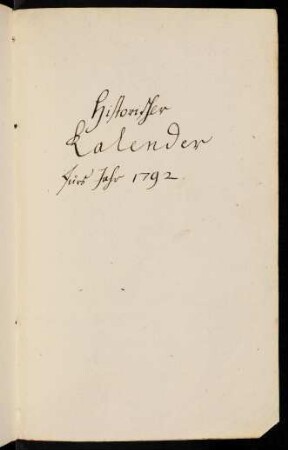 Historischer
Kalender
fürs Jahr 1792.